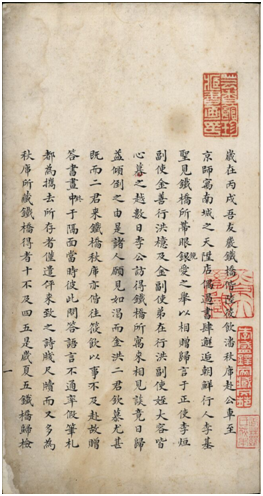 歲在丙戌吾友嚴鐵橋偕陸筱飲潘秋庫赴公車至
京師寓南城之天陞店偶過書肆邂逅朝鮮行人李基
聖見鐵橋所帶眼鏡愛之舉以相贈歸言于正使李烜
副使金善行洪檍及金副使弟在行洪副使姪大容客
心慕之越數日李公訪得鐵橋所寓來相見談竟日歸
益傾倒之由是諸人願見如渴而金洪二君欽慕尤甚
既而二君來鐵橋秋庫亦偕往筱飲以事不及赴故贈
答書畫中終于隔面當時彼此問答語言不通率假筆札
都為攜去所存者僅遣伴來致之詩牋尺牘而又多為
秋庫所藏鐵橋得者十不及四五是歲夏五鐵橋歸檢